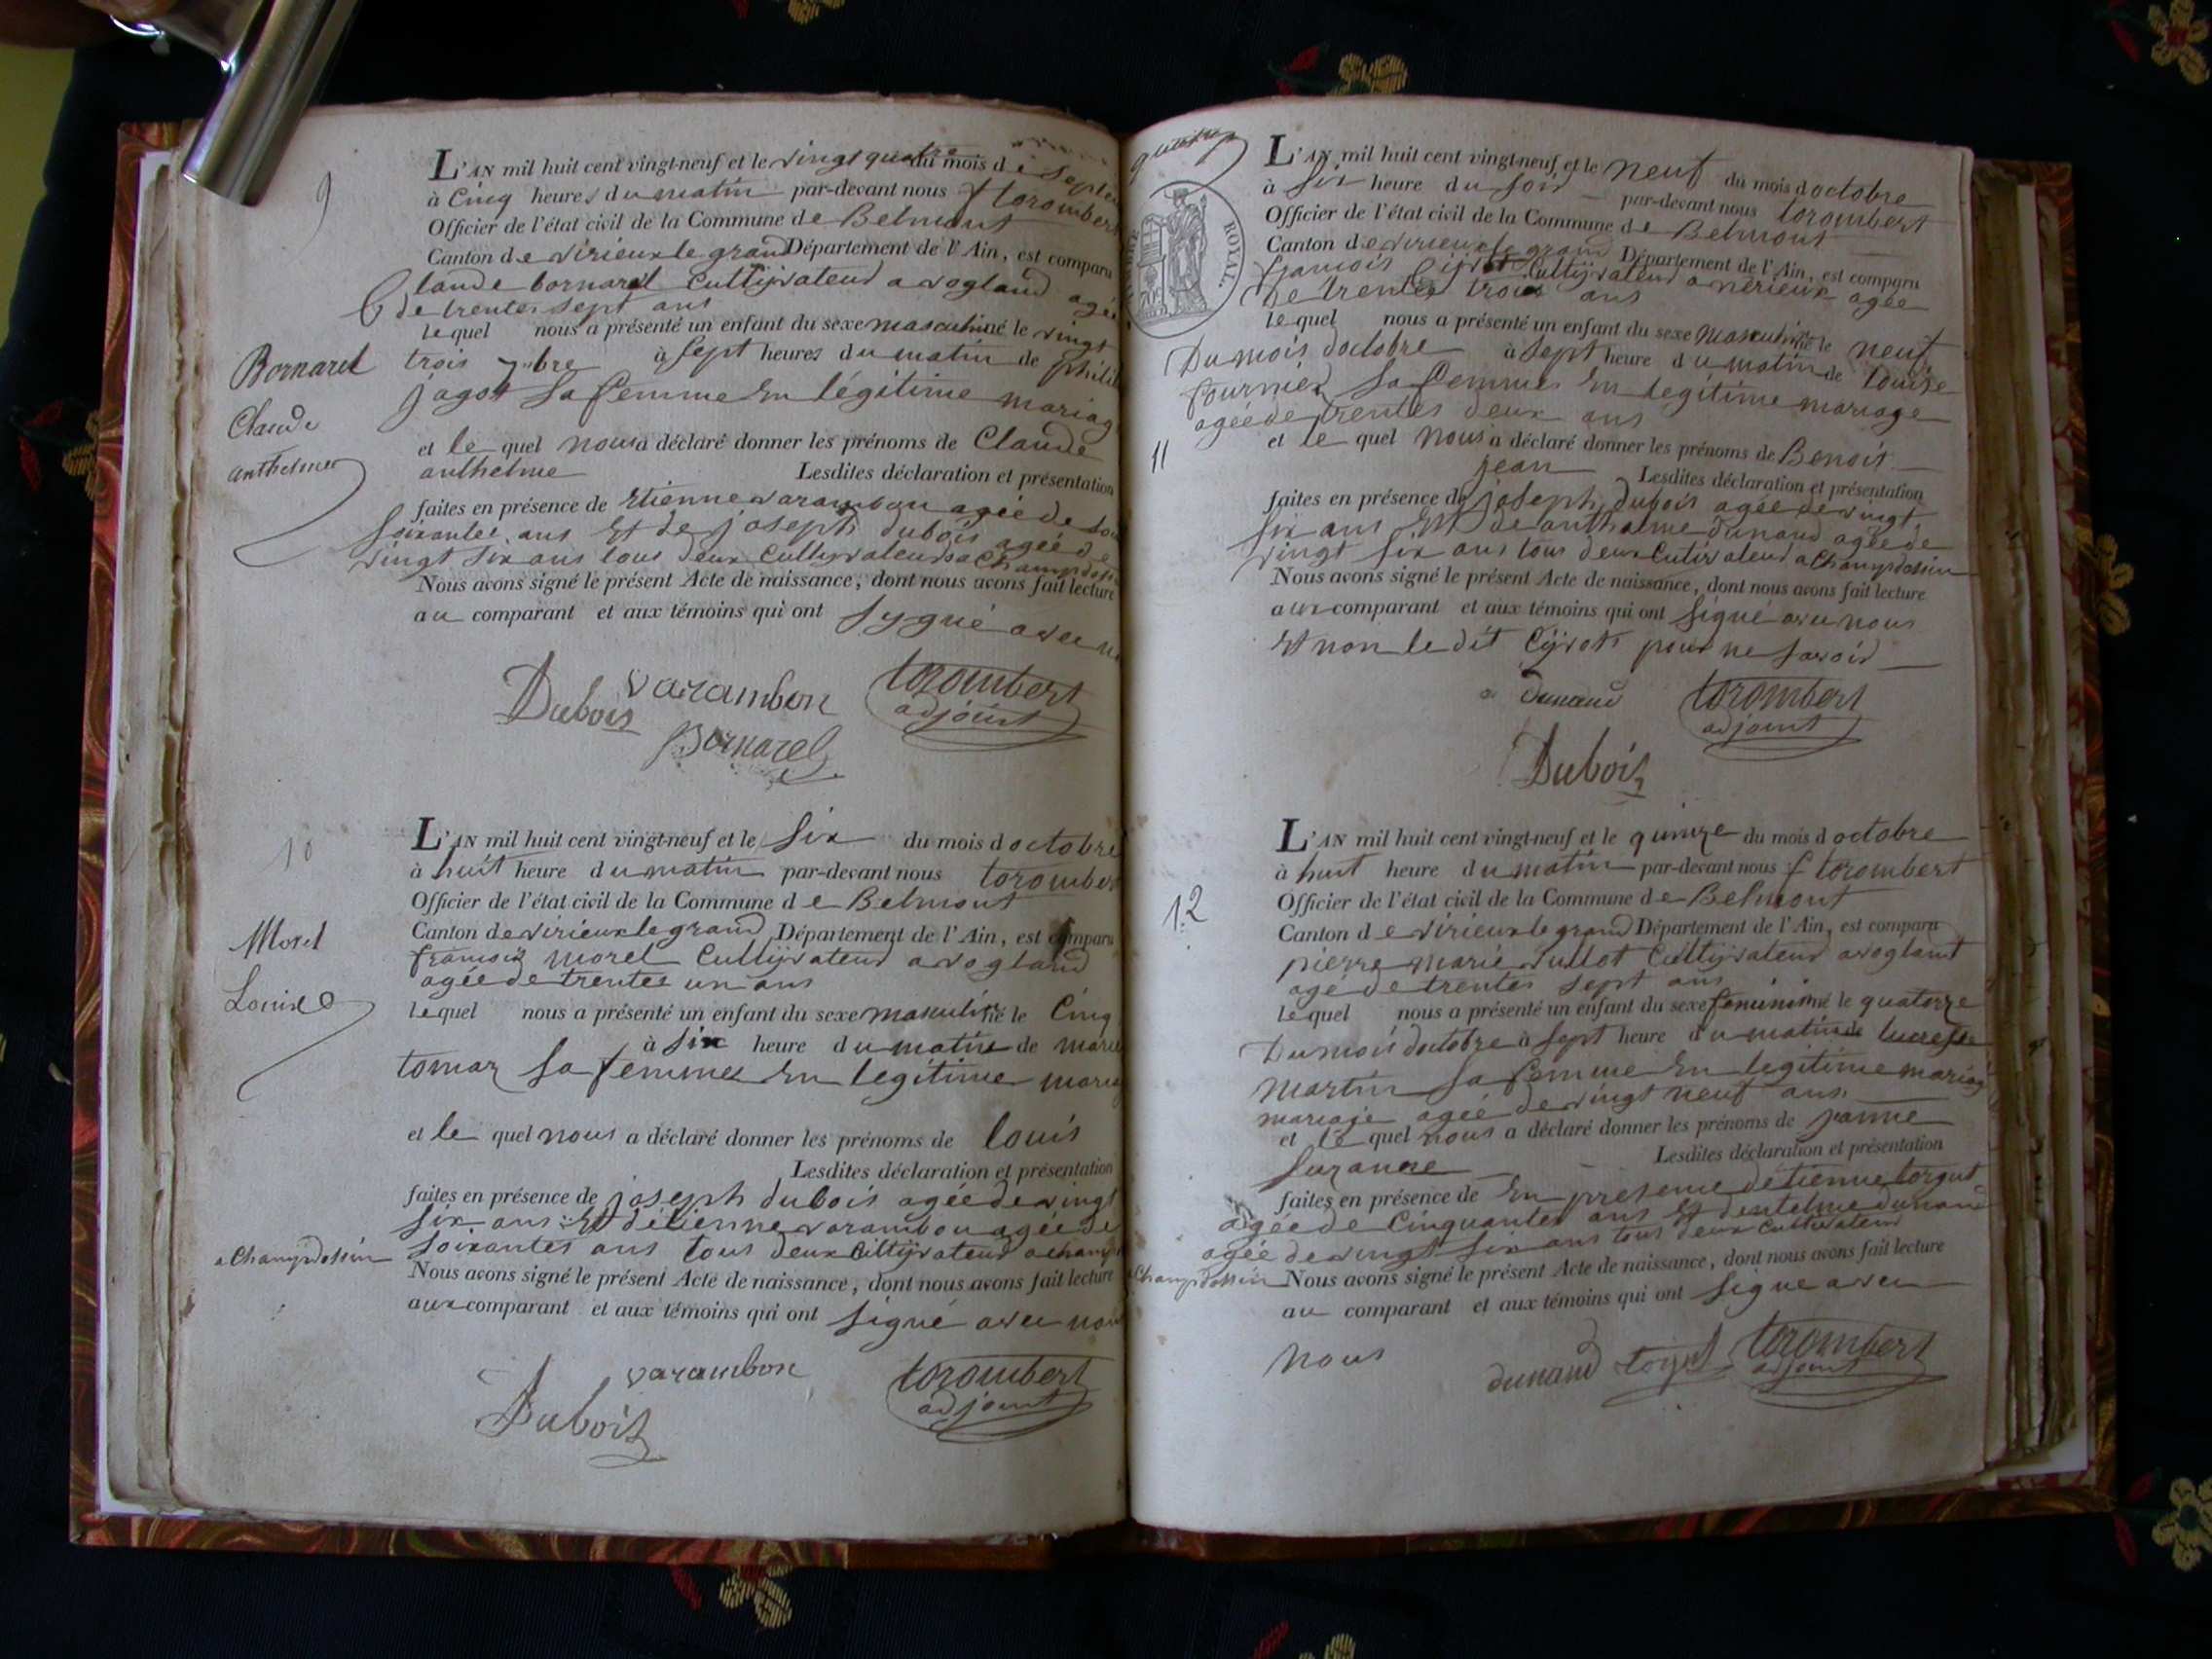 9
L'AN mil huit cent vingt-neuf et le vingt quatre du mois de septem
à Cinq heures du matin par-devant nous f torombert
Officier de l'état civil de la Commune de Belmont
Canton de virieux le grand Département de l'Ain, est comparu
Claude bornarel Cultijvateur a vogland agée
de trentes sept ans
lequel nous a présenté un enfant du sexe masculin né le vingt
trois 7bre à sept heures du matin de phili
jagot sa femme En légitime mariag
et le quel nous a déclaré donner les prénoms de Claude
anthelme Lesdites déclaration et présentation
faites en présence de Etienne varambon agée de
soixantes ans Et de joseph dubois agée de
vingt six ans tous deux Cultijvateurs a Champdossin
Nous avons signé le présent Acte de naissance, dont nous avons fait lecture
au comparant et aux témoins qui ont sygné avec
Bornarel
Claude
anthelme
varambon torombert
Dubois adjoint
Bornarel
10
L'AN mil huit cent vingt-neuf et le six du mois d octobre
à huit heure du matin par-devant nous torombert
Officier de l'état civil de la Commune de Belmont
Canton de virieux le grand Département de l'Ain, est comparu
francois morel Cultijvateur a vogland
agée de trentes un ans
lequel nous a présenté un enfant du sexe masculin né le Cinq
à six heure du matin de marie
tomar sa femme En legitime maria
et le quel nous a déclaré donner les prénoms de louis
Lesdites déclaration et présentation
faites en présence de joseph dubois agée de vingt
six ans Et d'étienne varambon agée de
soixantes ans tous deux Cultijvateur a champ
a Champdossin
Nous avons signé le présent Acte de naissance, dont nous avons fait lecture
aux comparant et aux témoins qui ont signé avec nous
Morel
Louise
varambon torombert
Dubois adjoint
ROYAL.
L'AN mil huit cent vingt-neuf et le neuf du mois d octobre
à six heure du soir par-devant nous torombert
Officier de l'état civil de la Commune de Belmont
Canton de virieux le grand Département de l'Ain, est comparu
francois Cijvot Cultijvateur a nérieux agée
de trentes trois ans
lequel nous a présenté un enfant du sexe masculin né le neuf
Du mois d'octobre à sept heure du matin de louise
fournier sa femme En legitime mariage
agée de trentes deux ans
11
et le quel nous a déclaré donner les prénoms de Benoit
jean Lesdites déclaration et présentation
faites en présence de joseph dubois agée de vingt
six ans Et de anthelme dunand agée de
vingt six ans tous deux Cultivateur a Champdossin
Nous avons signé le présent Acte de naissance, dont nous avons fait lecture
aux comparant et aux témoins qui ont signé avec nous
Et non le dit Cijvot pour ne savoir
a Dunand torombert
adjoint
Dubois
L'AN mil huit cent vingt-neuf et le quinze du mois d octobre
à huit heure du matin par-devant nous f torombert
12
Officier de l'état civil de la Commune de Belmont
Canton de virieux le grand Département de l'Ain, est comparu
pierre marie vullot Cultijvateur a vogland
agé de trentes sept ans
lequel nous a présenté un enfant du sexe féminin né le quatorze
Du mois d'octobre à sept heure du matin de lucresse
Martin sa femme En legitime mariag
mariaje agée de vingt neuf ans
et le quel nous a déclaré donner les prénoms de janne
suzanne Lesdites déclaration et présentation
faites en présence de En presence détienne torgut
agée de Cinquantes ans Et dentelme dunand
agée de vingt six ans tous deux Cultivateur
Champdossin Nous avons signé le présent Acte de naissance, dont nous avons fait lecture
au comparant et aux témoins qui ont signé avec
nous
dunand torgut torombert
adjoint